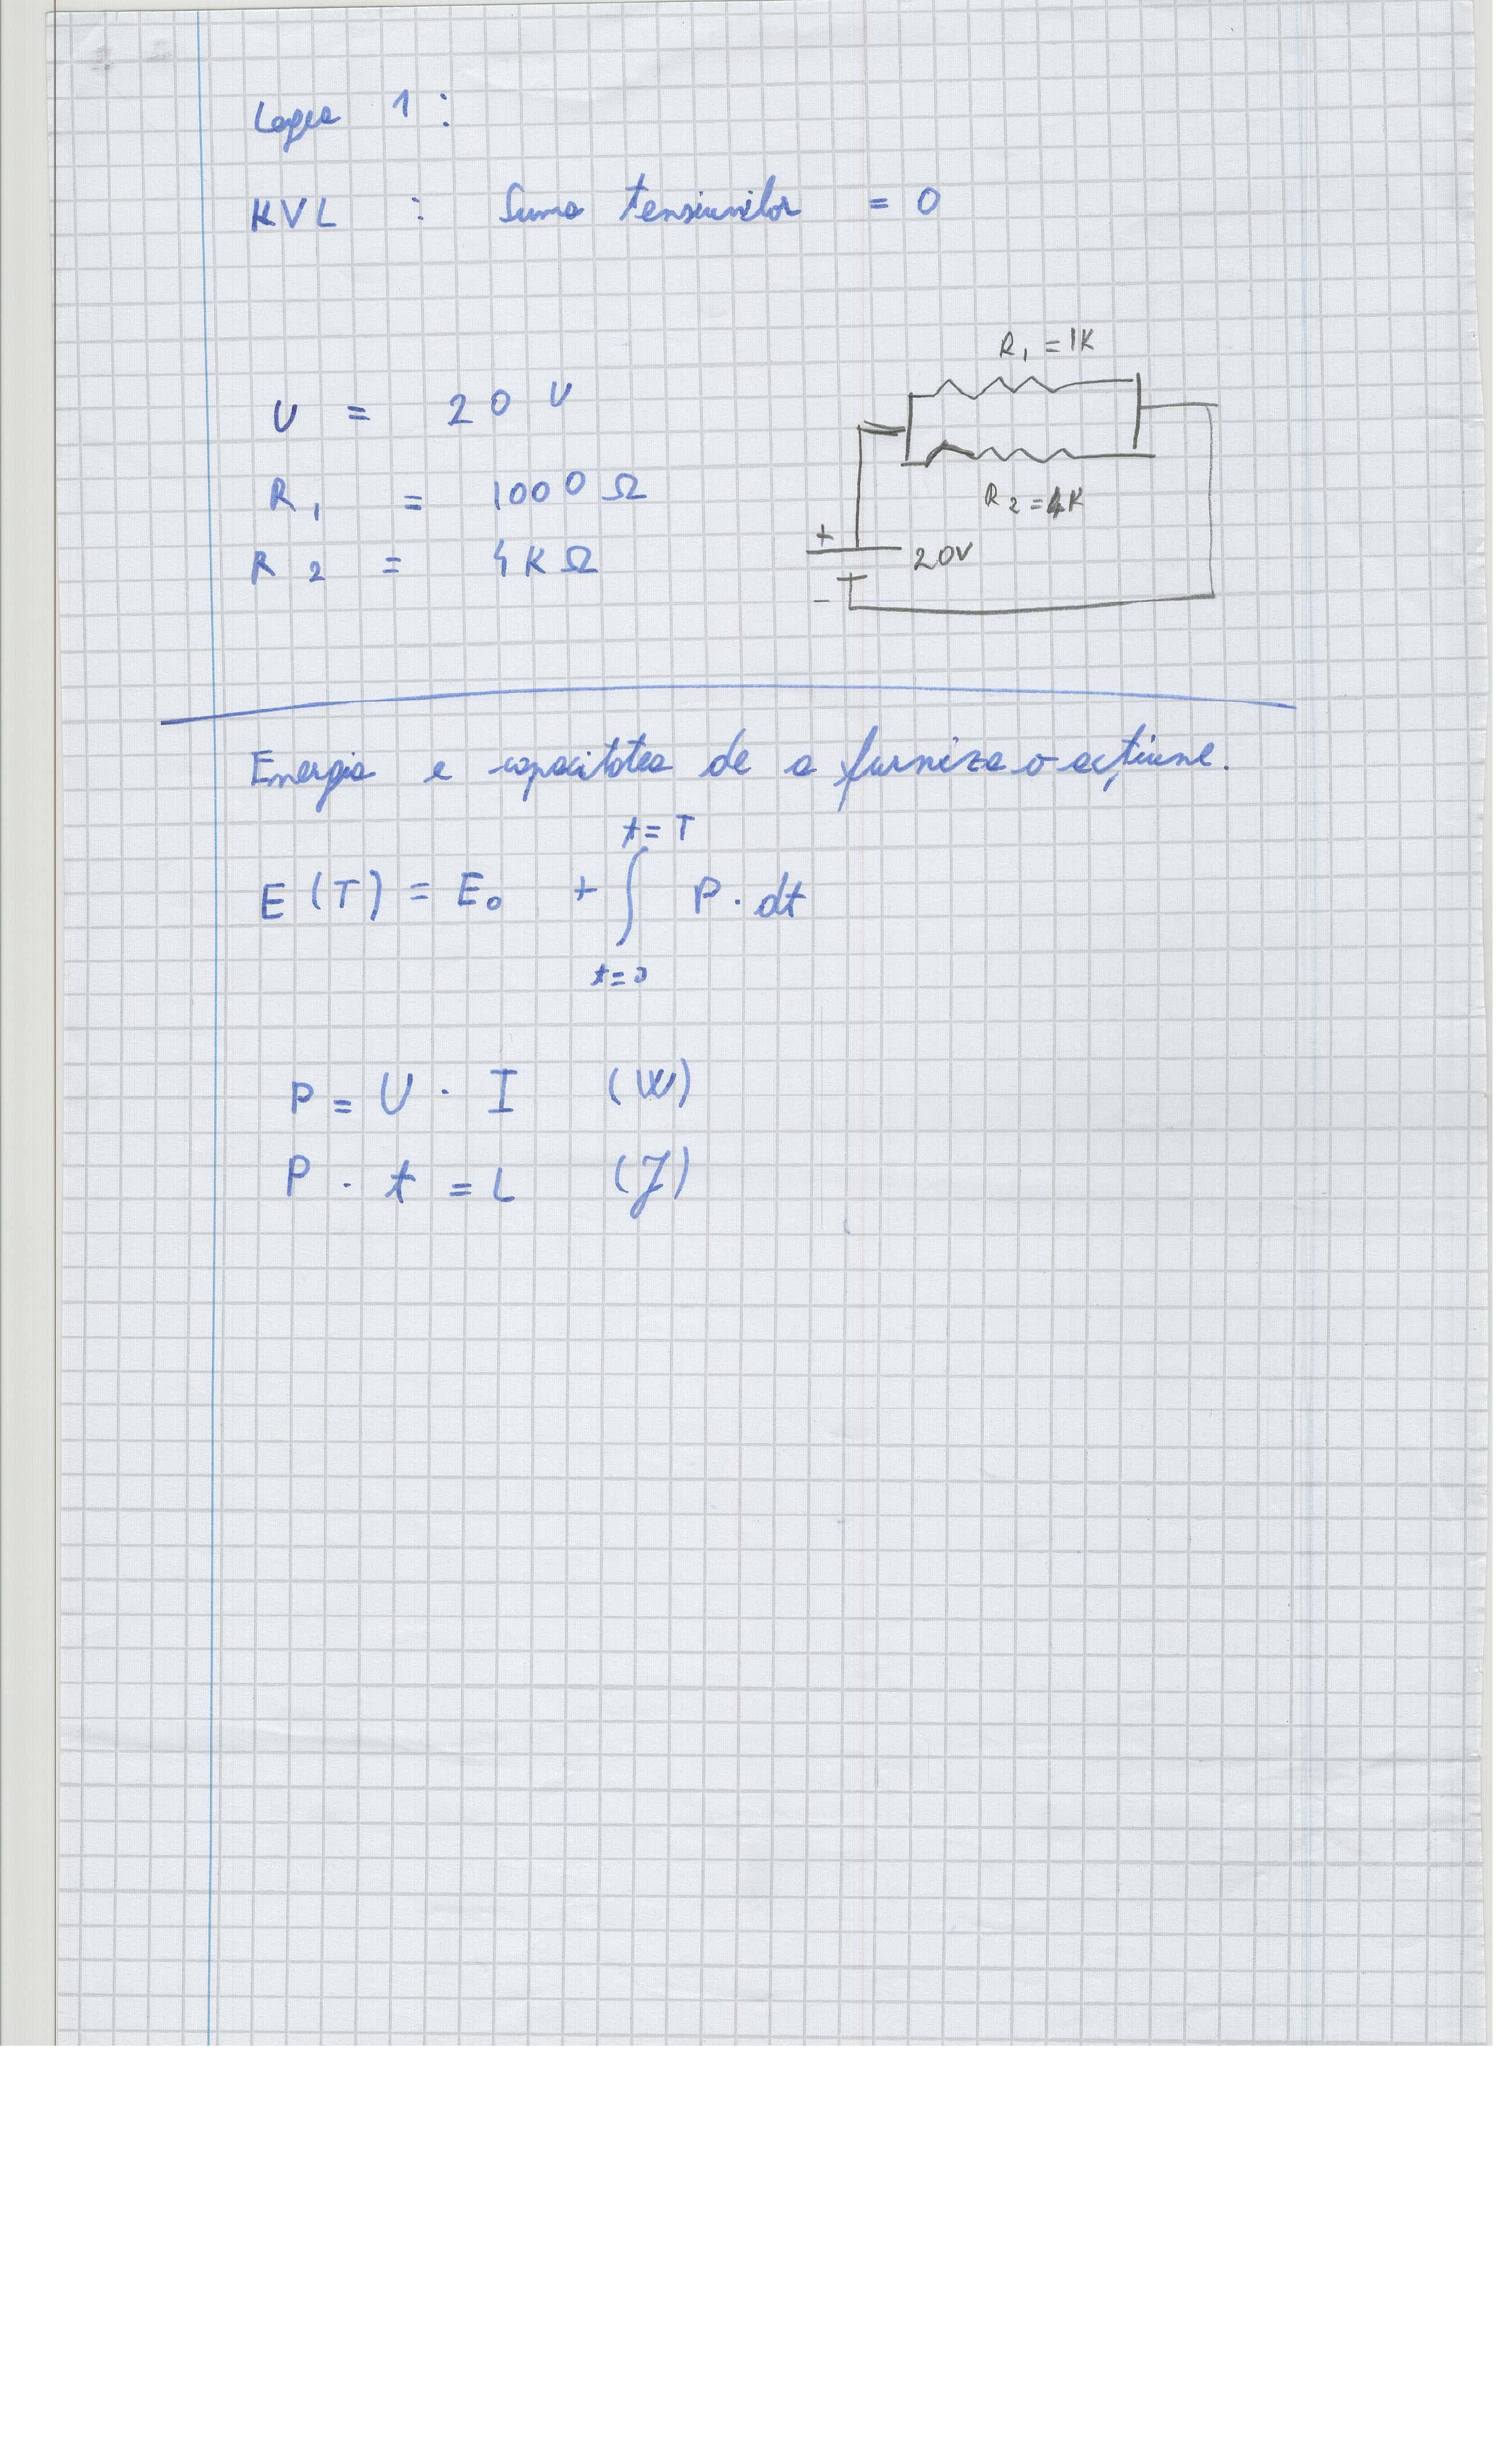 Legea 1 :
KVL : Suma tensiunilor = 0
R1 = 1K
U = 20 V
R1 = 1000 Ω
R2 = 4K
R2 = 4KΩ
+
20V
-
Energia e capacitatea de a furniza o acțiune.
t = T
E (T) = E0 + ∫ P · dt
t = 0
P = U · I (W)
P · t = L (J)